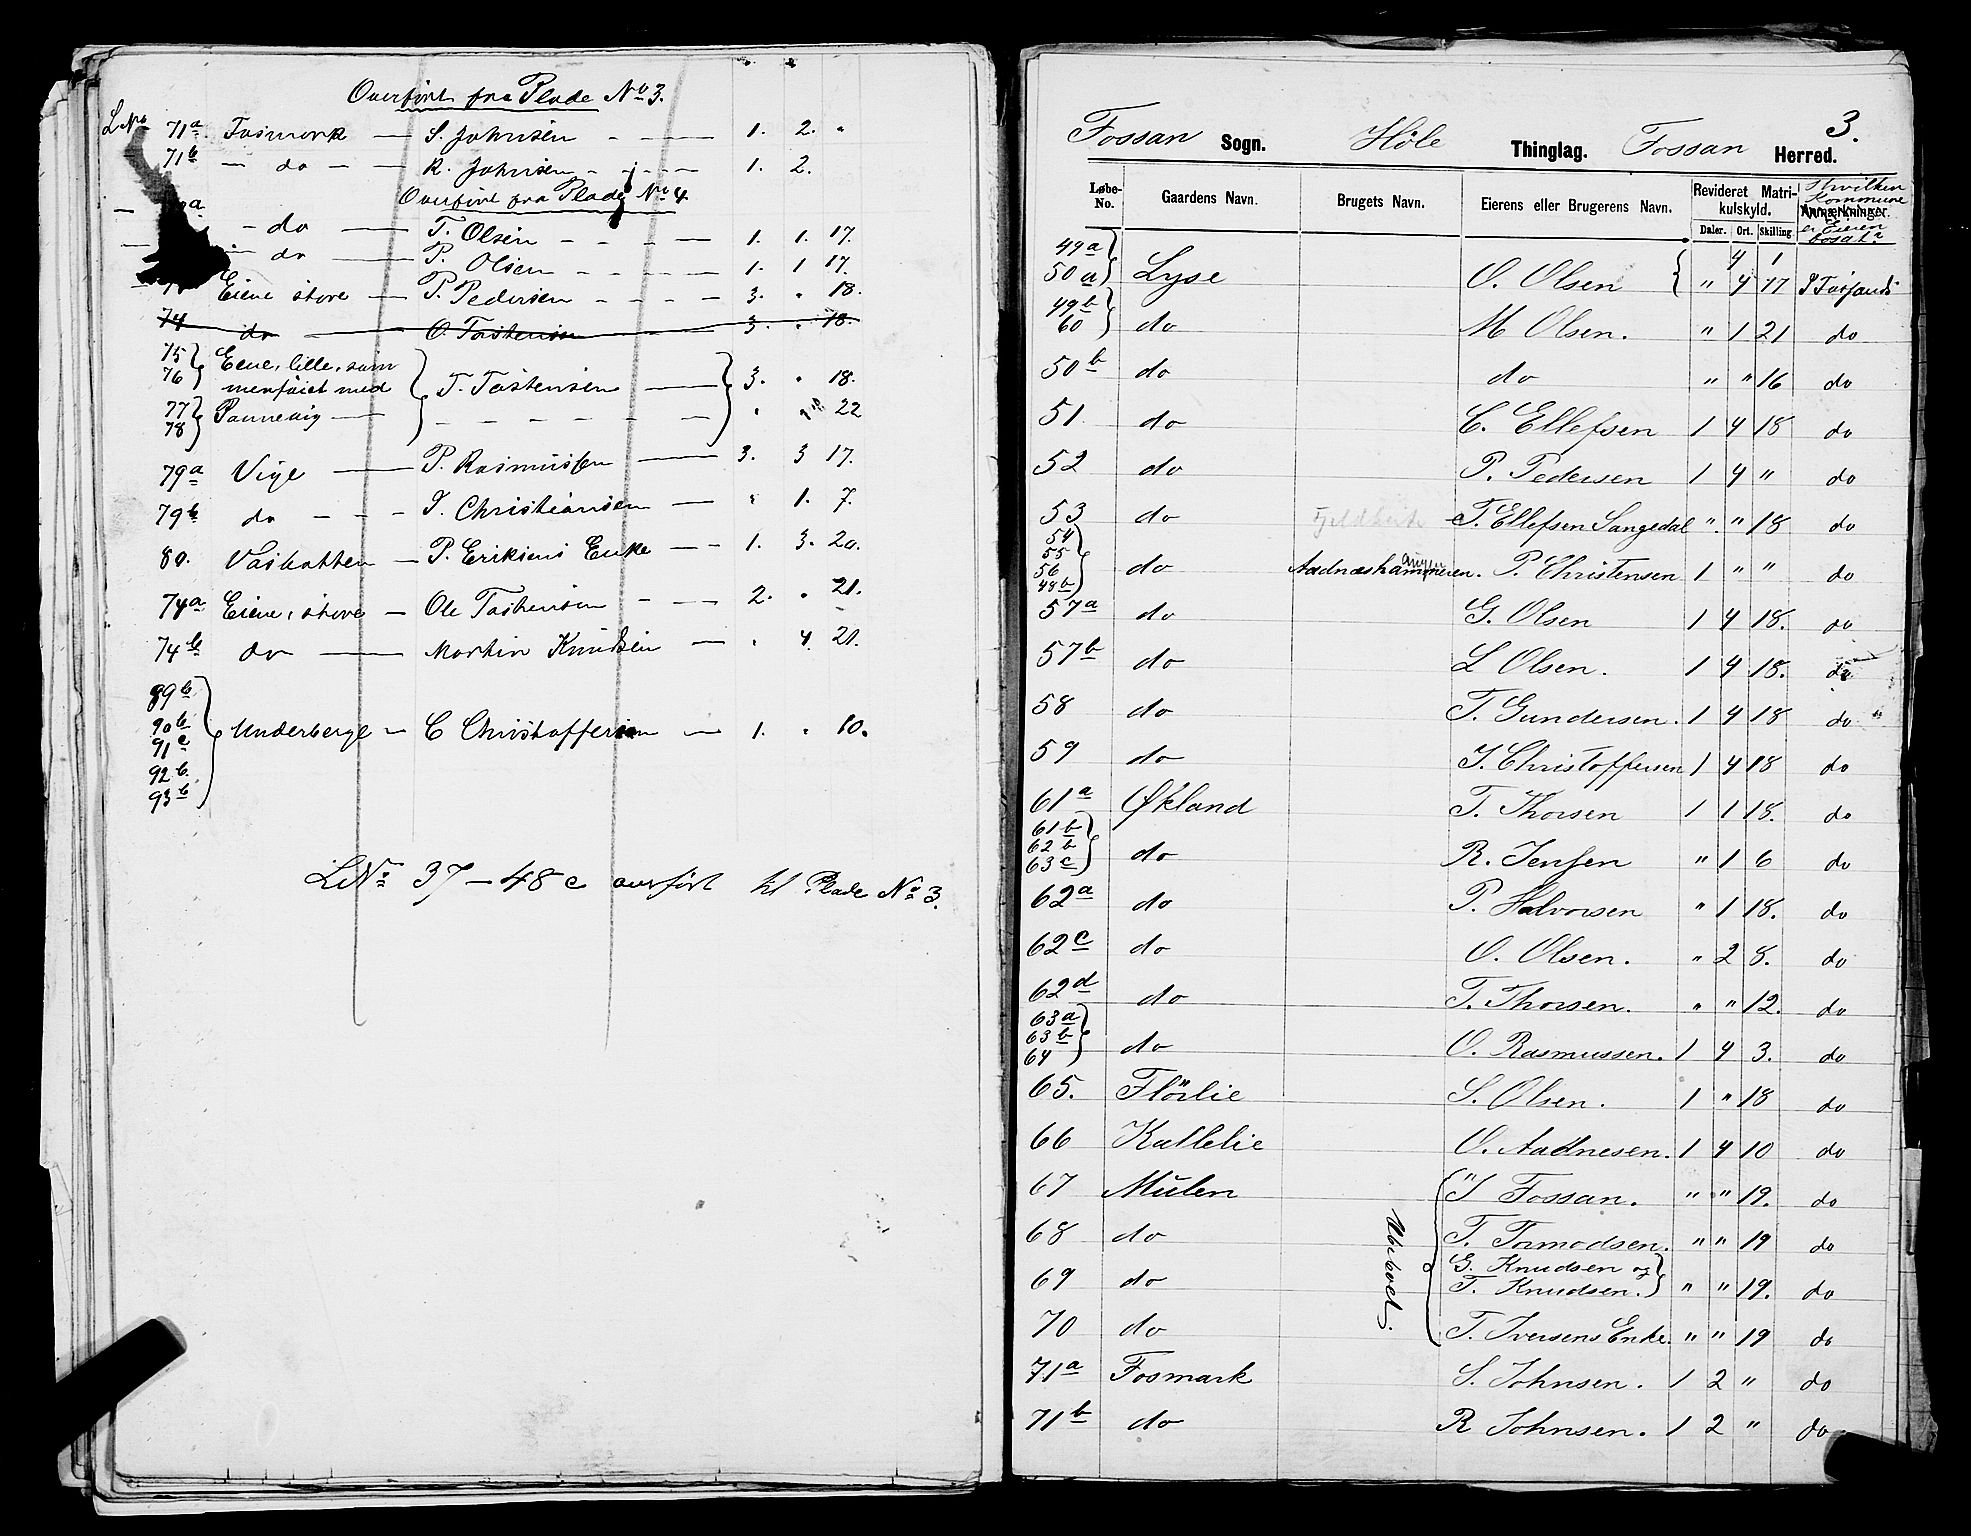 Overført fra Plade No 3.
LNo 71a Fosmark — S. Johnsen - — 1. 2. "
71b — do — R. Johnsen - - - — 1. 2.
Overført fra Plade No 4
a - do — T. Olsen - - - — 1. 1. 17.
- do — P. Olsen - - - — 1. 1 17.
Eiene store — P. Pedersen - - - — 3. " 18.
74 do — O. Tostensen 3. " 18.
75
76 Eiene, lille, sam
menføiet med T. Tostensen — 3. " 18.
77
78 Pannevig — - - - - - " " 22
79a Vige — P. Rasmussen — 3. 3 17.
79b do - - - T. Christiansen — " 1. 7.
80. Vasbotten — P. Eriksens Enke — 1. 3. 20.
74a Eiene, store — Ole Tostensen - — 2. " 21.
74b do — Martin Knudsen — " 4. 21.
89b
90b
91c Underberge — C Christoffersen — 1. " 10.
92b.
93b
LNo 37 – 48c overført til Plade No 3.
3.
Fossan Sogn. Høle Thinglag. Fossan Herred.
Løbe-No. Gaardens Navn. Brugets Navn. Eierens eller Brugerens Navn. Revideret Matrikulskyld. Anmærkninger.
Hvilken Kommune er Eieren bosat?
Daler. Ort. Skilling
49a 4 1
50a Lyse O. Olsen " 4 17 i Fosfands
49b
60 do M Olsen. " 1 21 do
50b do do " " 16 do
51 do C. Ellefsen 1 4 18 do
52 do P. Pedersen 1 4 " do
53 do Fjeldheste T. Ellefsen Sangedal " " 18 do
54
55
56 do Aadneshammeren. P. Christensen 1 " " do
48b
57a do G. Olsen 1 4 18. do
57b do L Olsen. 1 4 18. do
58 do T. Gundersen. 1 4 18 do "
59 do T. Christoffersen 1 4 18 do
61a Økland T. Thorsen 1 1 18. do
61b
62b
63c do R. Jensen " 1 6 do
62a do P. Halvorsen " 1 18. do
62c do O. Olsen. " 2 8. do
62d do T. Thorsen. " " 12. do
63a
63b
64 do O. Rasmussen. 1 4 3. do
65. Flörlie S. Olsen. 1 " 18 do
66 Kallelie O. Aadnesen. 1 4 10 do
67 Mulen T Fossan. " " 19. do
68 do T. Tormodsen. " " 19 do
69 do G. Knudsen og
T. Knudsen. " " 19. do
70 do T. Iversens Enke. " " 19 do
Ubeboet.
71a Fosmark S. Johnsen. 1 2 " do
71b do R Johnsen. 1 2 " do